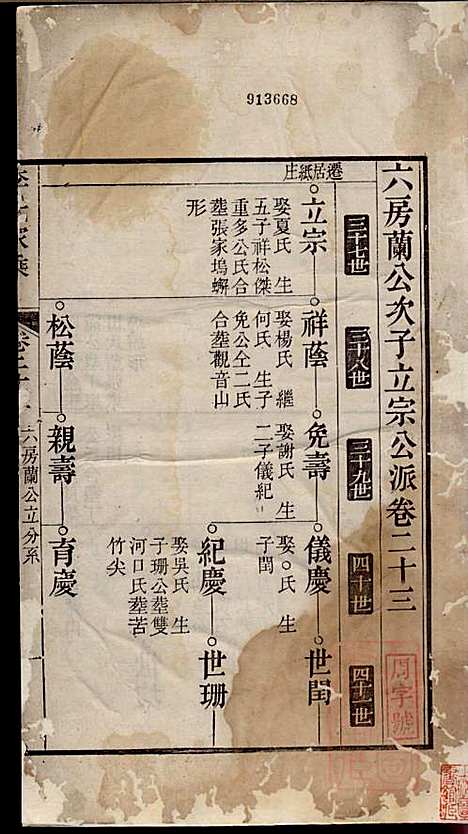 913668
六房蘭公次子立宗公派卷二十三
三十七世
三十八世
三十九世
四十世
四十一世
遷居紙庄
立宗
娶夏氏 生
五子祥松傑
重多公氏合
塟張家塢蠏
形
祥蔭
娶楊氏 繼
何氏 生子
免公仝二氏
合塟觀音山
免壽
娶謝氏 生
二子儀紀
儀慶
娶○氏 生
子閏
世閏
紀慶
娶吳氏 生
子珊公塟雙
河口氏塟苦
竹尖
世珊
松蔭
親壽
育慶
六房蘭公立分系
周字號